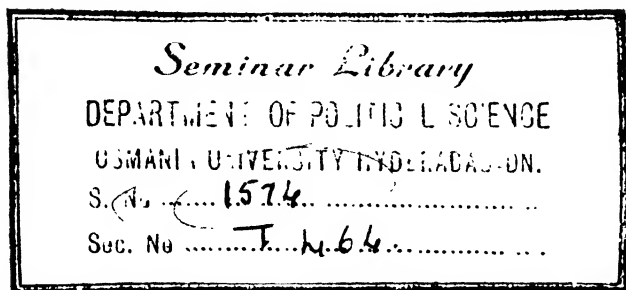 Seminar Library
DEPARTMENT OF POLITICAL SCIENCE
OSMANIA UNIVERSITY HYDERABAD-DN.
S. No ....... 1574 .......
Sec. No .......